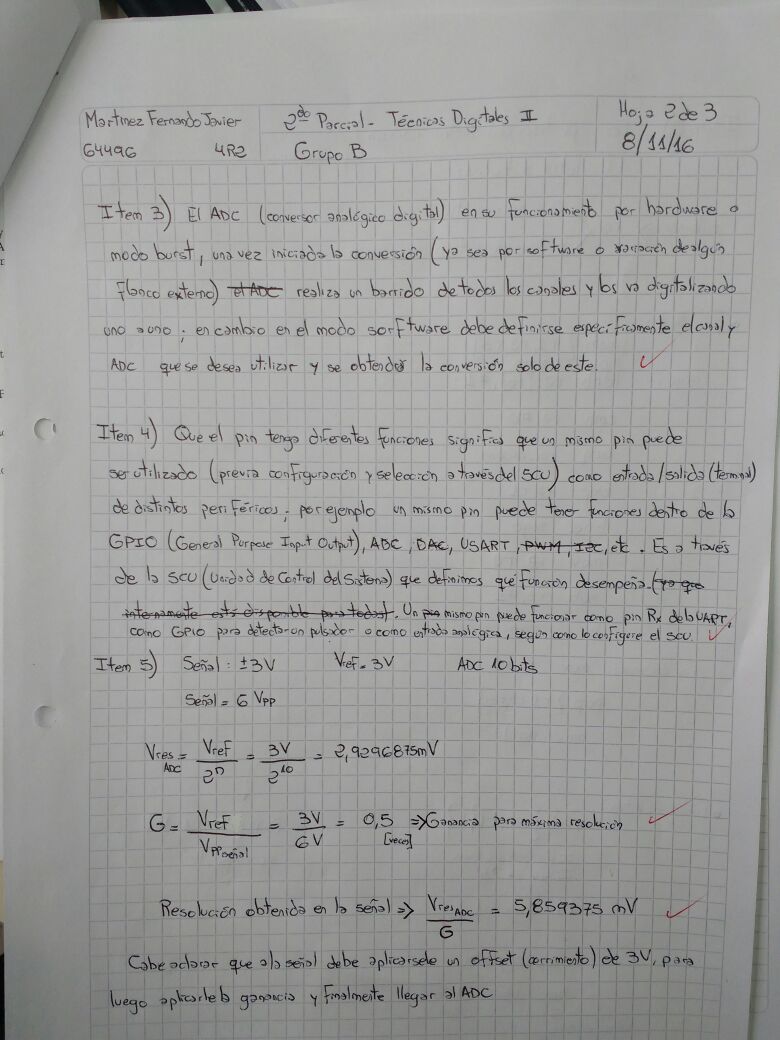 Martinez Fernando Javier
64496 4R2
2do Parcial - Técnicas Digitales II
Grupo B
Hoja 2 de 3
8/11/16
Item 3) El ADC (conversor analógico digital) en su funcionamiento por hardware o
modo burst, una vez iniciada la conversión (ya sea por software o variación de algún
flanco externo) el ADC realiza un barrido de todos los canales y los va digitalizando
uno a uno; en cambio en el modo sorftware debe definirse específicamente el canal y
ADC que se desea utilizar y se obtendrá la conversión solo de este.
Item 4) Que el pin tenga diferentes funciones significa que un mismo pin puede
ser utilizado (previa configuración y selección a través del SCU) como entrada/salida (terminal)
de distintos periféricos; por ejemplo un mismo pin puede tener funciones dentro de la
GPIO (General Purpose Input Output), ADC, DAC, USART, PWM, I2C, etc. Es a través
de la SCU (Unidad de Control del Sistema) que definimos qué función desempeña. (ya que
internamente está disponible para todas). Un pin mismo pin puede funcionar como pin Rx de la UART,
como GPIO para detectar un pulsador o como entrada analógica, según como lo configure el SCU.
Item 5) Señal: ±3V Vref = 3V ADC 10 bits
Señal = 6 Vpp
Vres ADC = Vref / 2^n = 3V / 2^10 = 2,9296875mV
G = Vref / Vpp señal = 3V / 6V = 0,5 [veces] => Ganancia para máxima resolución
Resolución obtenida en la señal => Vres ADC / G = 5,859375 mV
Cabe aclarar que a la señal debe aplicarsele un offset (corrimiento) de 3V, para
luego aplicarle la ganancia y finalmente llegar al ADC